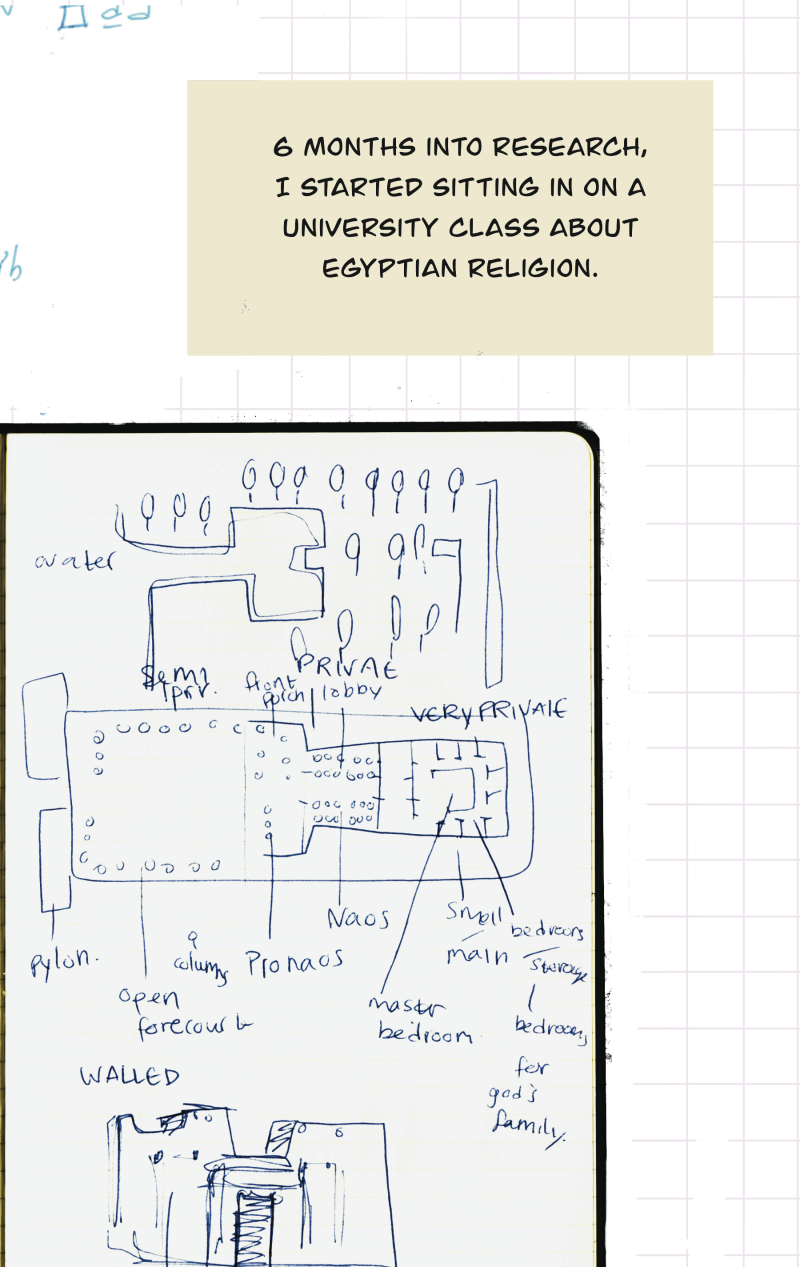 6 MONTHS INTO RESEARCH,
I STARTED SITTING IN ON A
UNIVERSITY CLASS ABOUT
EGYPTIAN RELIGION.
water
Semi
prv.
front
porch
PRIVATE
lobby
VERY PRIVATE
pylon.
open
forecourt
columns
Pronaos
Naos
master
bedroom
small
main
bedrooms
storage
bedrooms
for
god's
family.
WALLED